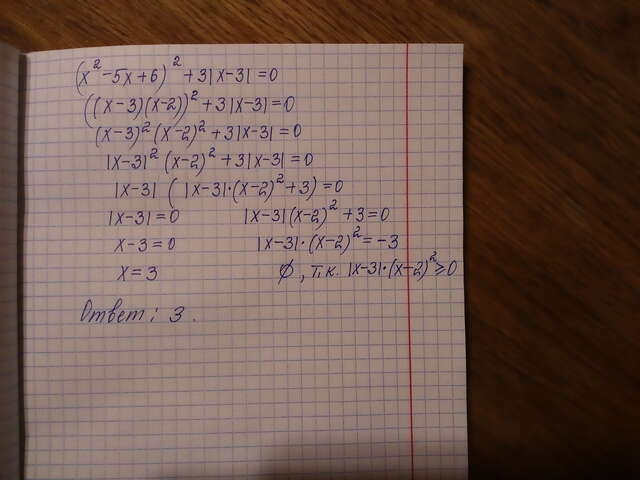 (x² - 5x + 6)² + 3|x - 3| = 0
((x - 3)(x - 2))² + 3|x - 3| = 0
(x - 3)² (x - 2)² + 3|x - 3| = 0
|x - 3|² (x - 2)² + 3|x - 3| = 0
|x - 3| ( |x - 3| · (x - 2)² + 3) = 0
|x - 3| = 0 |x - 3|(x - 2)² + 3 = 0
x - 3 = 0 |x - 3| · (x - 2)² = -3
x = 3 ∅, т.к. |x - 3| · (x - 2)² ≥ 0
Ответ: 3.